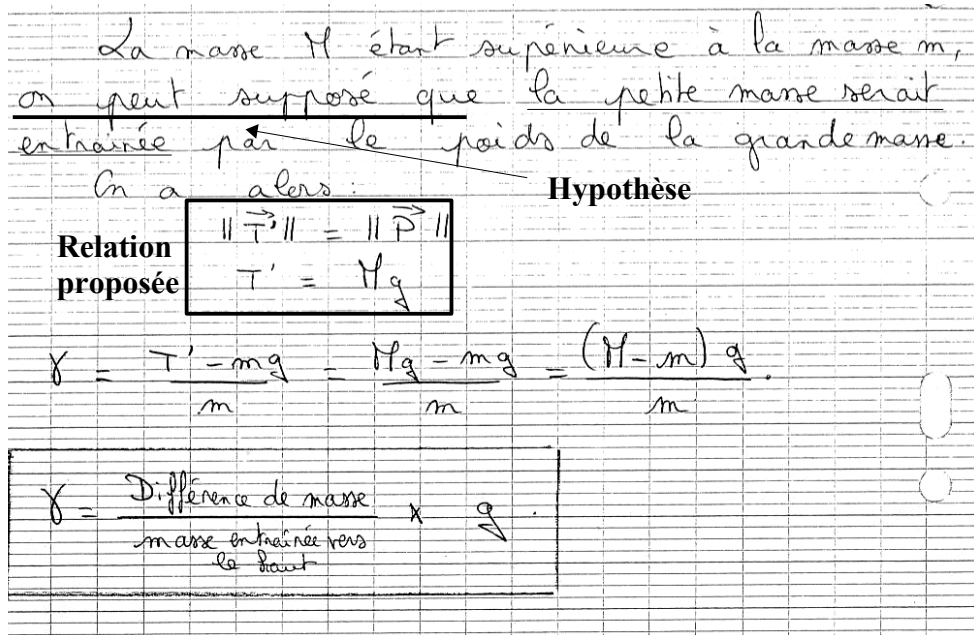 La masse M étant supérieure à la masse m,
on peut supposé que la petite masse serait
entraînée par le poids de la grande masse.
On a alors :
Hypothèse
Relation proposée
|| T' || = || P ||
T' = Mg
γ = (T' - mg)/m = (Mg - mg)/m = ((M - m) g)/m .
γ = Différence de masse / masse entraînée vers le haut × g .